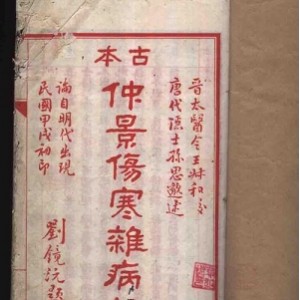 古本
晉太醫令王叔和
唐代隱士孫思邈述
仲景傷寒雜病
論自明代出現
民國甲戌初印
劉鏡沅題